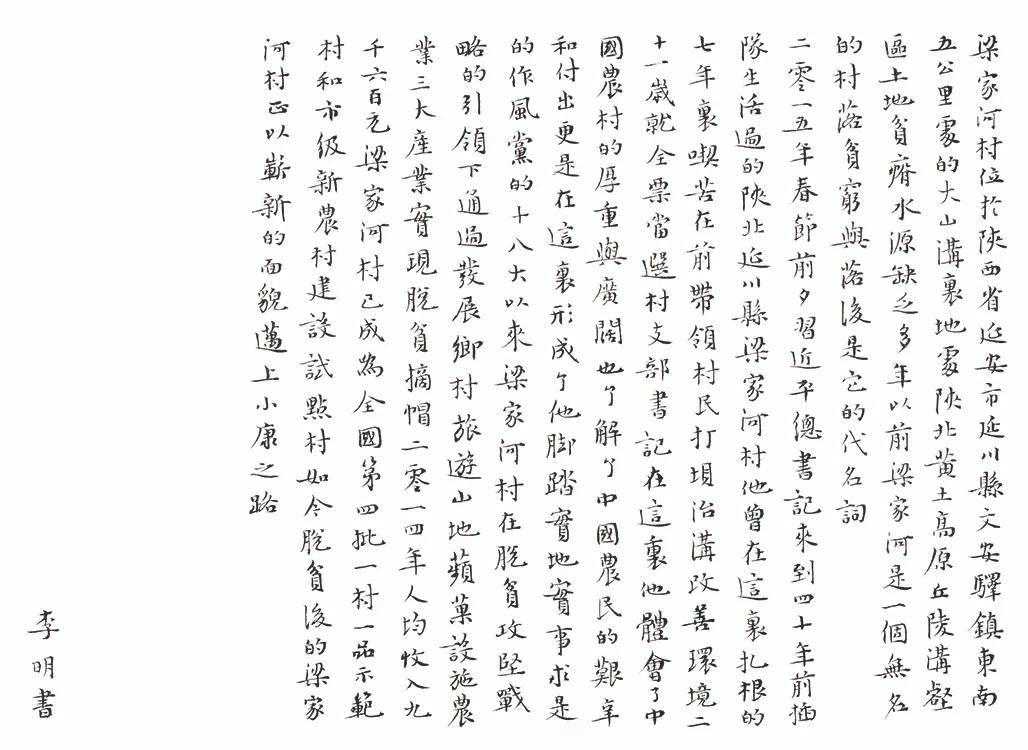 梁家河村位於陝西省延安市延川縣文安驛鎮東南
五公里處的大山溝裏地處陝北黃土高原丘陵溝壑
區土地貧瘠水源缺乏多年以前梁家河是一個無名
的村落貧窮與落後是它的代名詞
二零一五年春節前夕習近平總書記來到四十年前插
隊生活過的陝北延川縣梁家河村他曾在這裏扎根的
七年裏喫苦在前帶領村民打壩治溝改善環境二
十一歲就全票當選村支部書記在這裏他體會了中
國農村的厚重與廣闊也了解了中國農民的艱辛
和付出更是在這裏形成了他脚踏實地實事求是
的作風黨的十八大以來梁家河村在脫貧攻堅戰
略的引領下通過發展鄉村旅遊山地蘋菓設施農
業三大産業實現脫貧摘帽二零一四年人均收入九
千六百元梁家河村已成為全國第四批一村一品示範
村和市級新農村建設試點村如今脫貧後的梁家
河村正以嶄新的面貌邁上小康之路
李明書